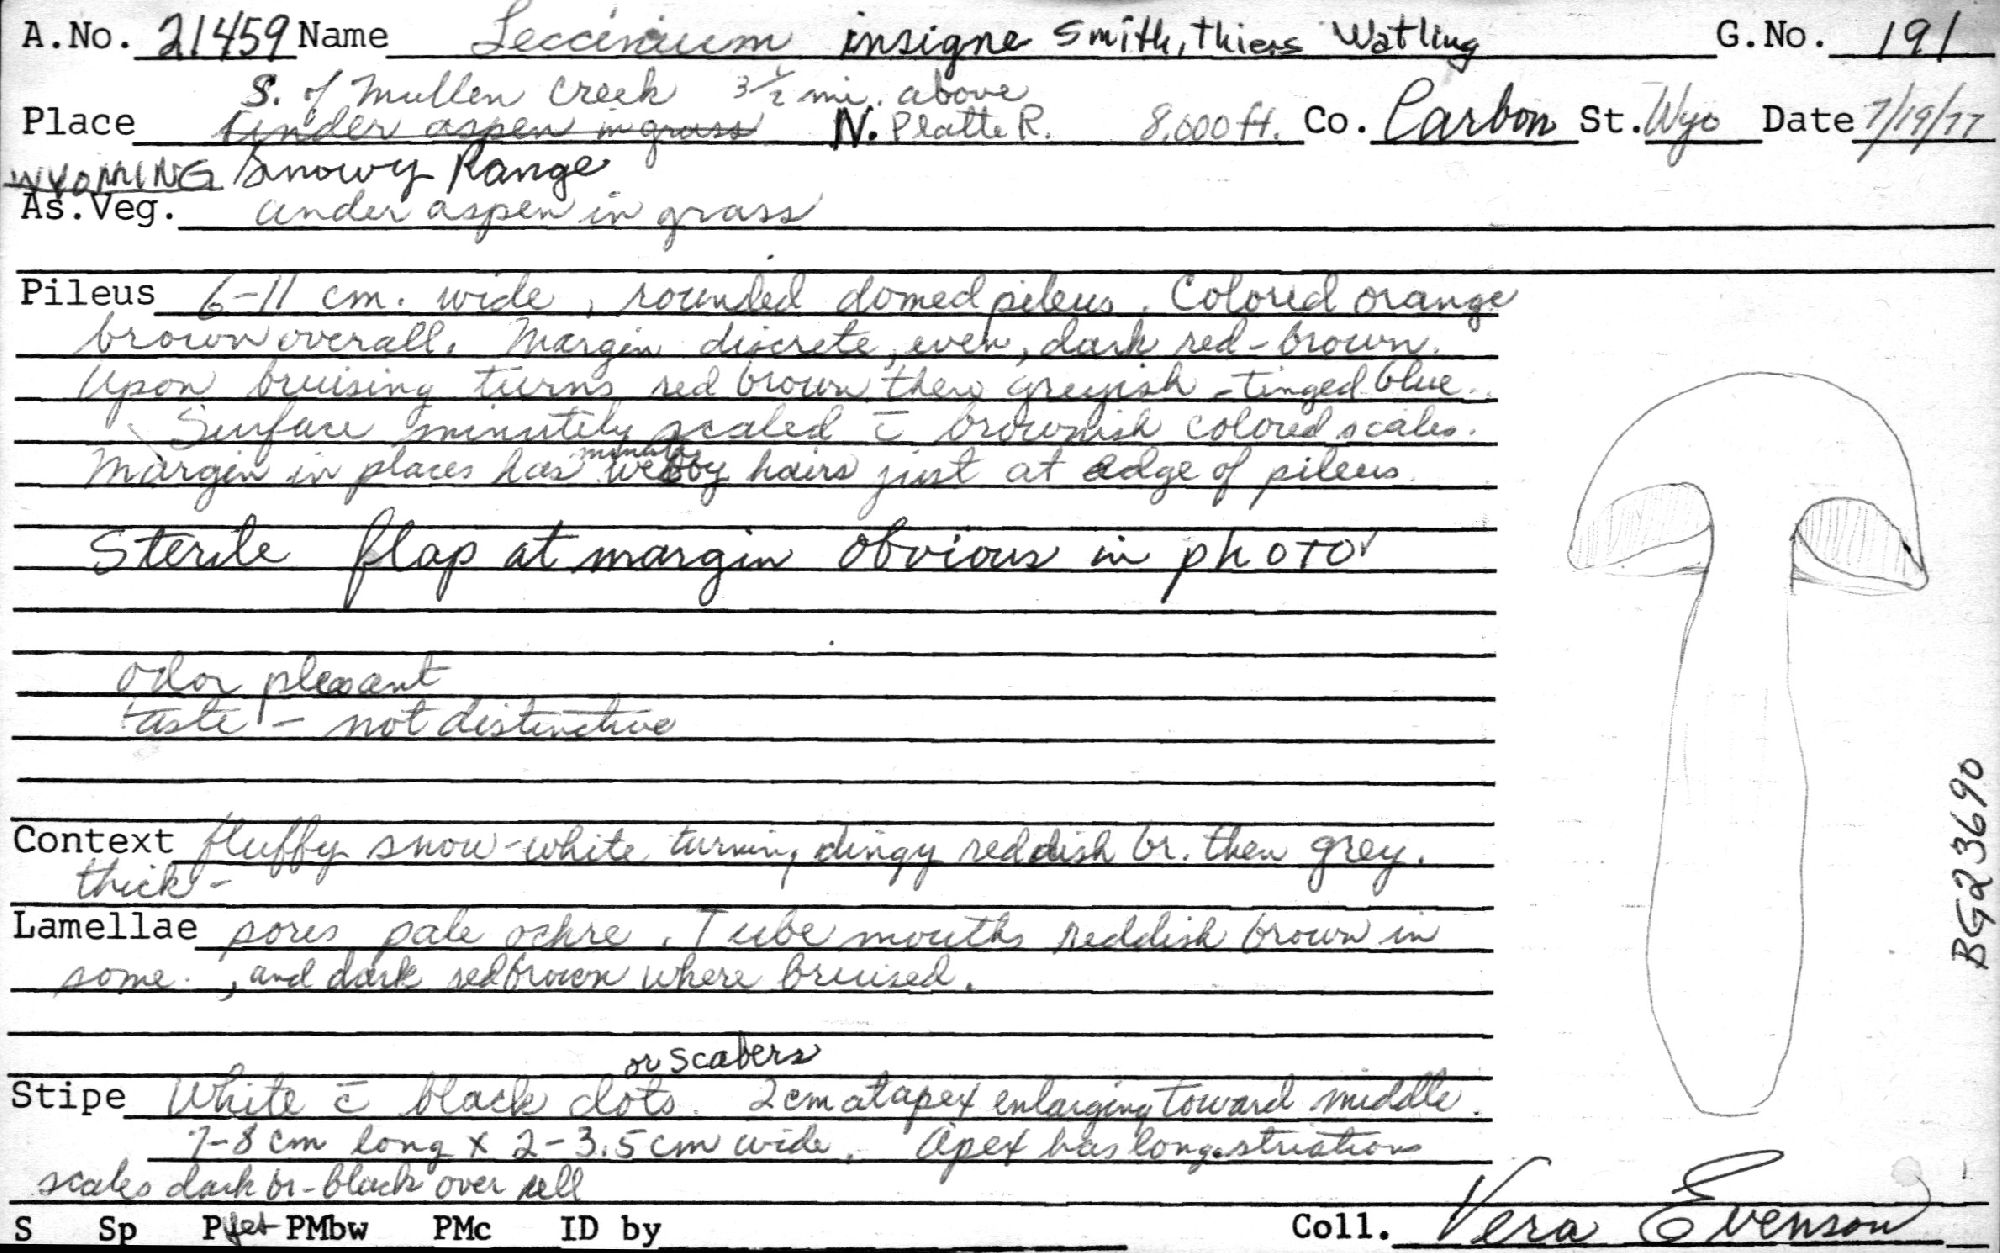 A.No. 21459 Name Leccinium insigne Smith, Thiers Watling G.No. 191
S. of Mullen Creek 3½ mi. above
Place under aspen in grass N. Platte R. 8,000 ft. Co. Carbon St. Wyo Date 7/19/77
WYOMING Snowy Range
As.Veg. under aspen in grass
Pileus 6-11 cm. wide, rounded domed pileus. Colored orange
brown overall. Margin discrete, even, dark red-brown.
Upon bruising turns red brown then greyish-tinged blue.
Surface minutely scaled c̄ brownish colored scales.
Margin in places has minute webby hairs just at edge of pileus
Sterile flap at margin obvious in photo
odor pleasant
taste - not distinctive
Context fluffy snow-white turning dingy reddish br. then grey.
thick-
Lamellae pores pale ochre. Tube mouths reddish brown in
some. , and dark redbrown where bruised.
or scabers
Stipe White c̄ black dots. 2cm at apex enlarging toward middle.
7-8 cm long x 2-3.5 cm wide. Apex has long striations
scales dark br-black over all
S Sp P yet PMbw PMc ID by Coll. Vera Evenson
BG23690